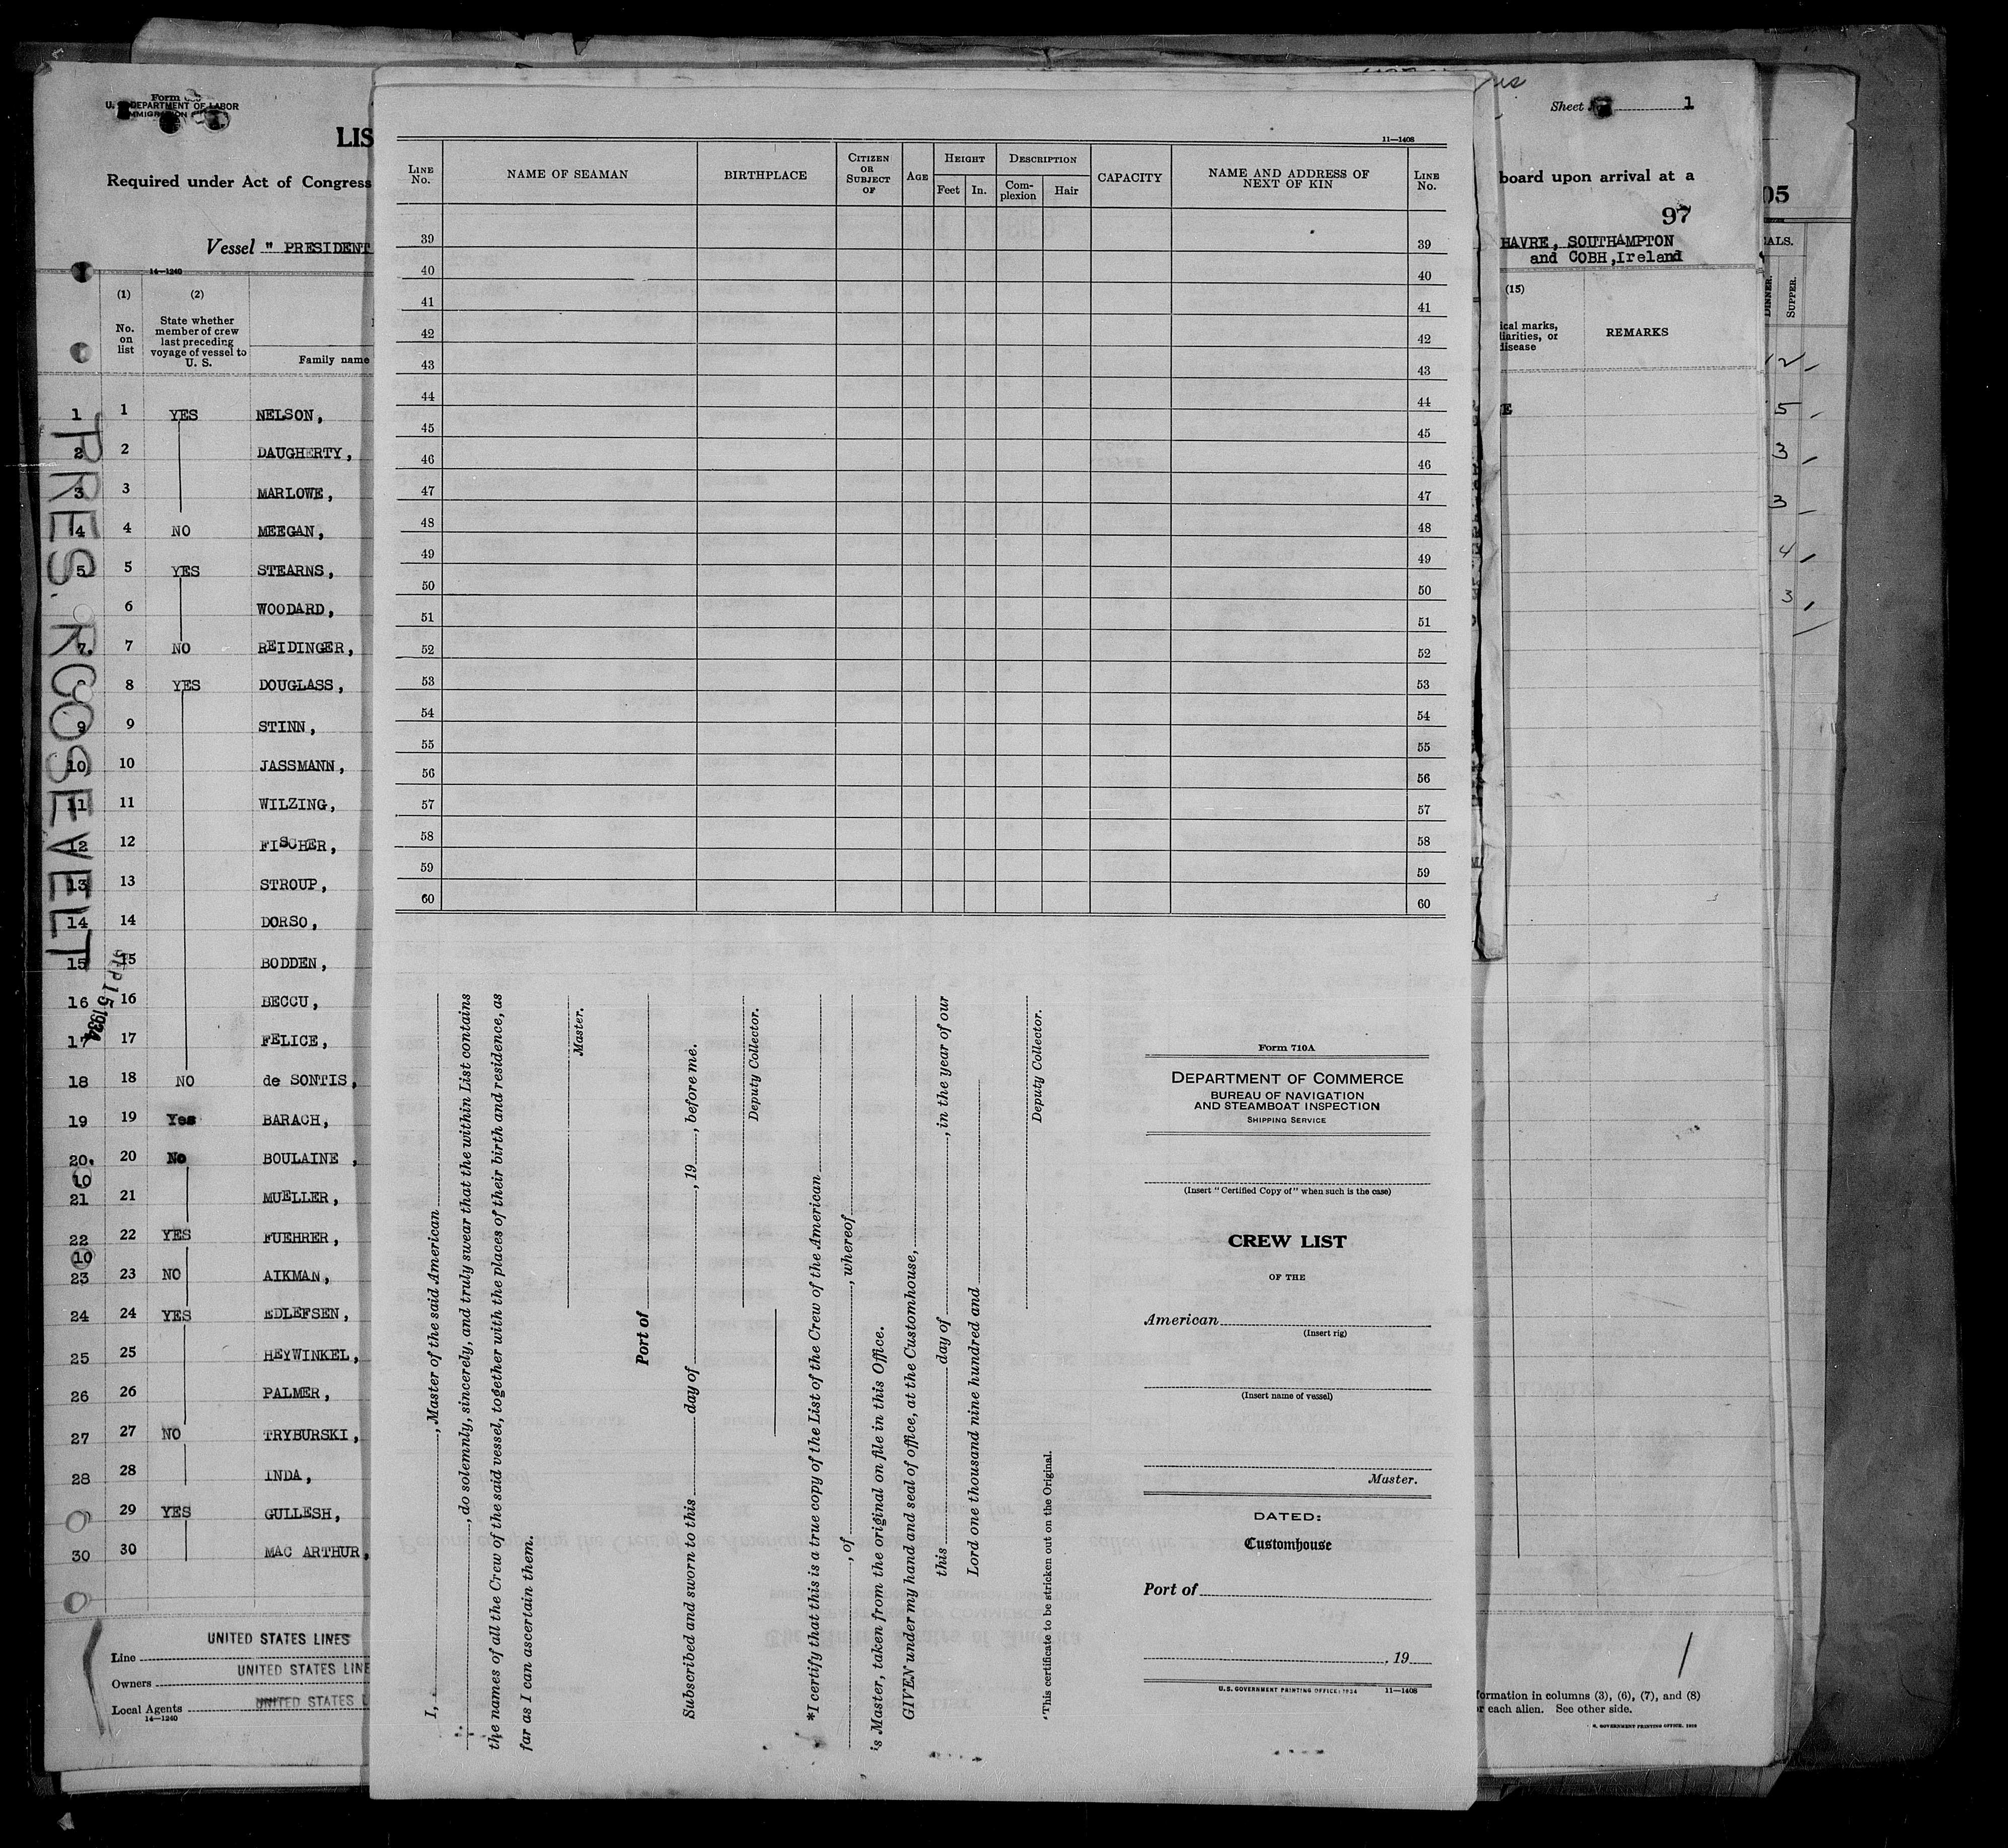 U. S. DEPARTMENT OF LABOR
LIS
Required under Act of Congress
Vessel " PRESIDENT
14—1240
(1)
(2)
No. on list
State whether member of crew last preceding voyage of vessel to U. S.
Family name
1 1 YES NELSON,
2 2 DAUGHERTY,
3 3 MARLOWE,
4 4 NO MEEGAN,
5 5 YES STEARNS,
6 WOODARD,
7 7 NO REIDINGER,
8 YES DOUGLASS,
9 9 STINN,
10 10 JASSMANN,
11 11 WILZING,
12 12 FISCHER,
13 13 STROUP,
14 14 DORSO,
15 15 BODDEN,
16 16 BECCU,
17 17 FELICE,
18 18 NO de SONTIS,
19 19 Yes BARACH,
20 20 No BOULAINE ,
10
21 21 MUELLER,
22 22 YES FUEHRER,
10
23 23 NO AIKMAN,
24 24 YES EDLEFSEN,
25 25 HEYWINKEL,
26 26 PALMER,
27 27 NO TRYBURSKI,
28 28 INDA,
29 YES GULLESH,
30 30 MAC ARTHUR,
PRES. ROOSEVELT
SEP 15 1934
UNITED STATES LINES
Line
UNITED STATES LINE
Owners
UNITED STATES L
Local Agents
14—1240
11—1408
LINE No.
NAME OF SEAMAN
BIRTHPLACE
CITIZEN OR SUBJECT OF
AGE
HEIGHT
Feet In.
DESCRIPTION
Complexion Hair
CAPACITY
NAME AND ADDRESS OF NEXT OF KIN
LINE No.
39 39
40 40
41 41
42 42
43 43
44 44
45 45
46 46
47 47
48 48
49 49
50 50
51 51
52 52
53 53
54 54
55 55
56 56
57 57
58 58
59 59
60 60
I, , Master of the said American
, do solemnly, sincerely, and truly swear that the within List contains
the names of all the Crew of the said vessel, together with the places of their birth and residence, as
far as I can ascertain them.
Master.
Port of
Subscribed and sworn to this day of , 19 , before me.
Deputy Collector.
*I certify that this is a true copy of the List of the Crew of the American
, of , whereof
is Master, taken from the original on file in this Office.
GIVEN under my hand and seal of office, at the Customhouse,
this day of , in the year of our
Lord one thousand nine hundred and
Deputy Collector.
*This certificate to be stricken out on the Original.
Form 710A
DEPARTMENT OF COMMERCE
BUREAU OF NAVIGATION
AND STEAMBOAT INSPECTION
SHIPPING SERVICE
(Insert "Certified Copy of" when such is the case)
CREW LIST
OF THE
American
(Insert rig)
(Insert name of vessel)
Master.
DATED:
Customhouse
Port of
, 19
U.S. GOVERNMENT PRINTING OFFICE: 1934 11—1408
Sheet 1
board upon arrival at a
97
HAVRE, SOUTHAMPTON
and COBH,Ireland
(15)
ical marks,
liarities, or
disease
REMARKS
E
05
ALS.
DINNER.
SUPPER.
2
5
3
3
4
3
formation in columns (3), (6), (7), and (8)
r each alien. See other side.